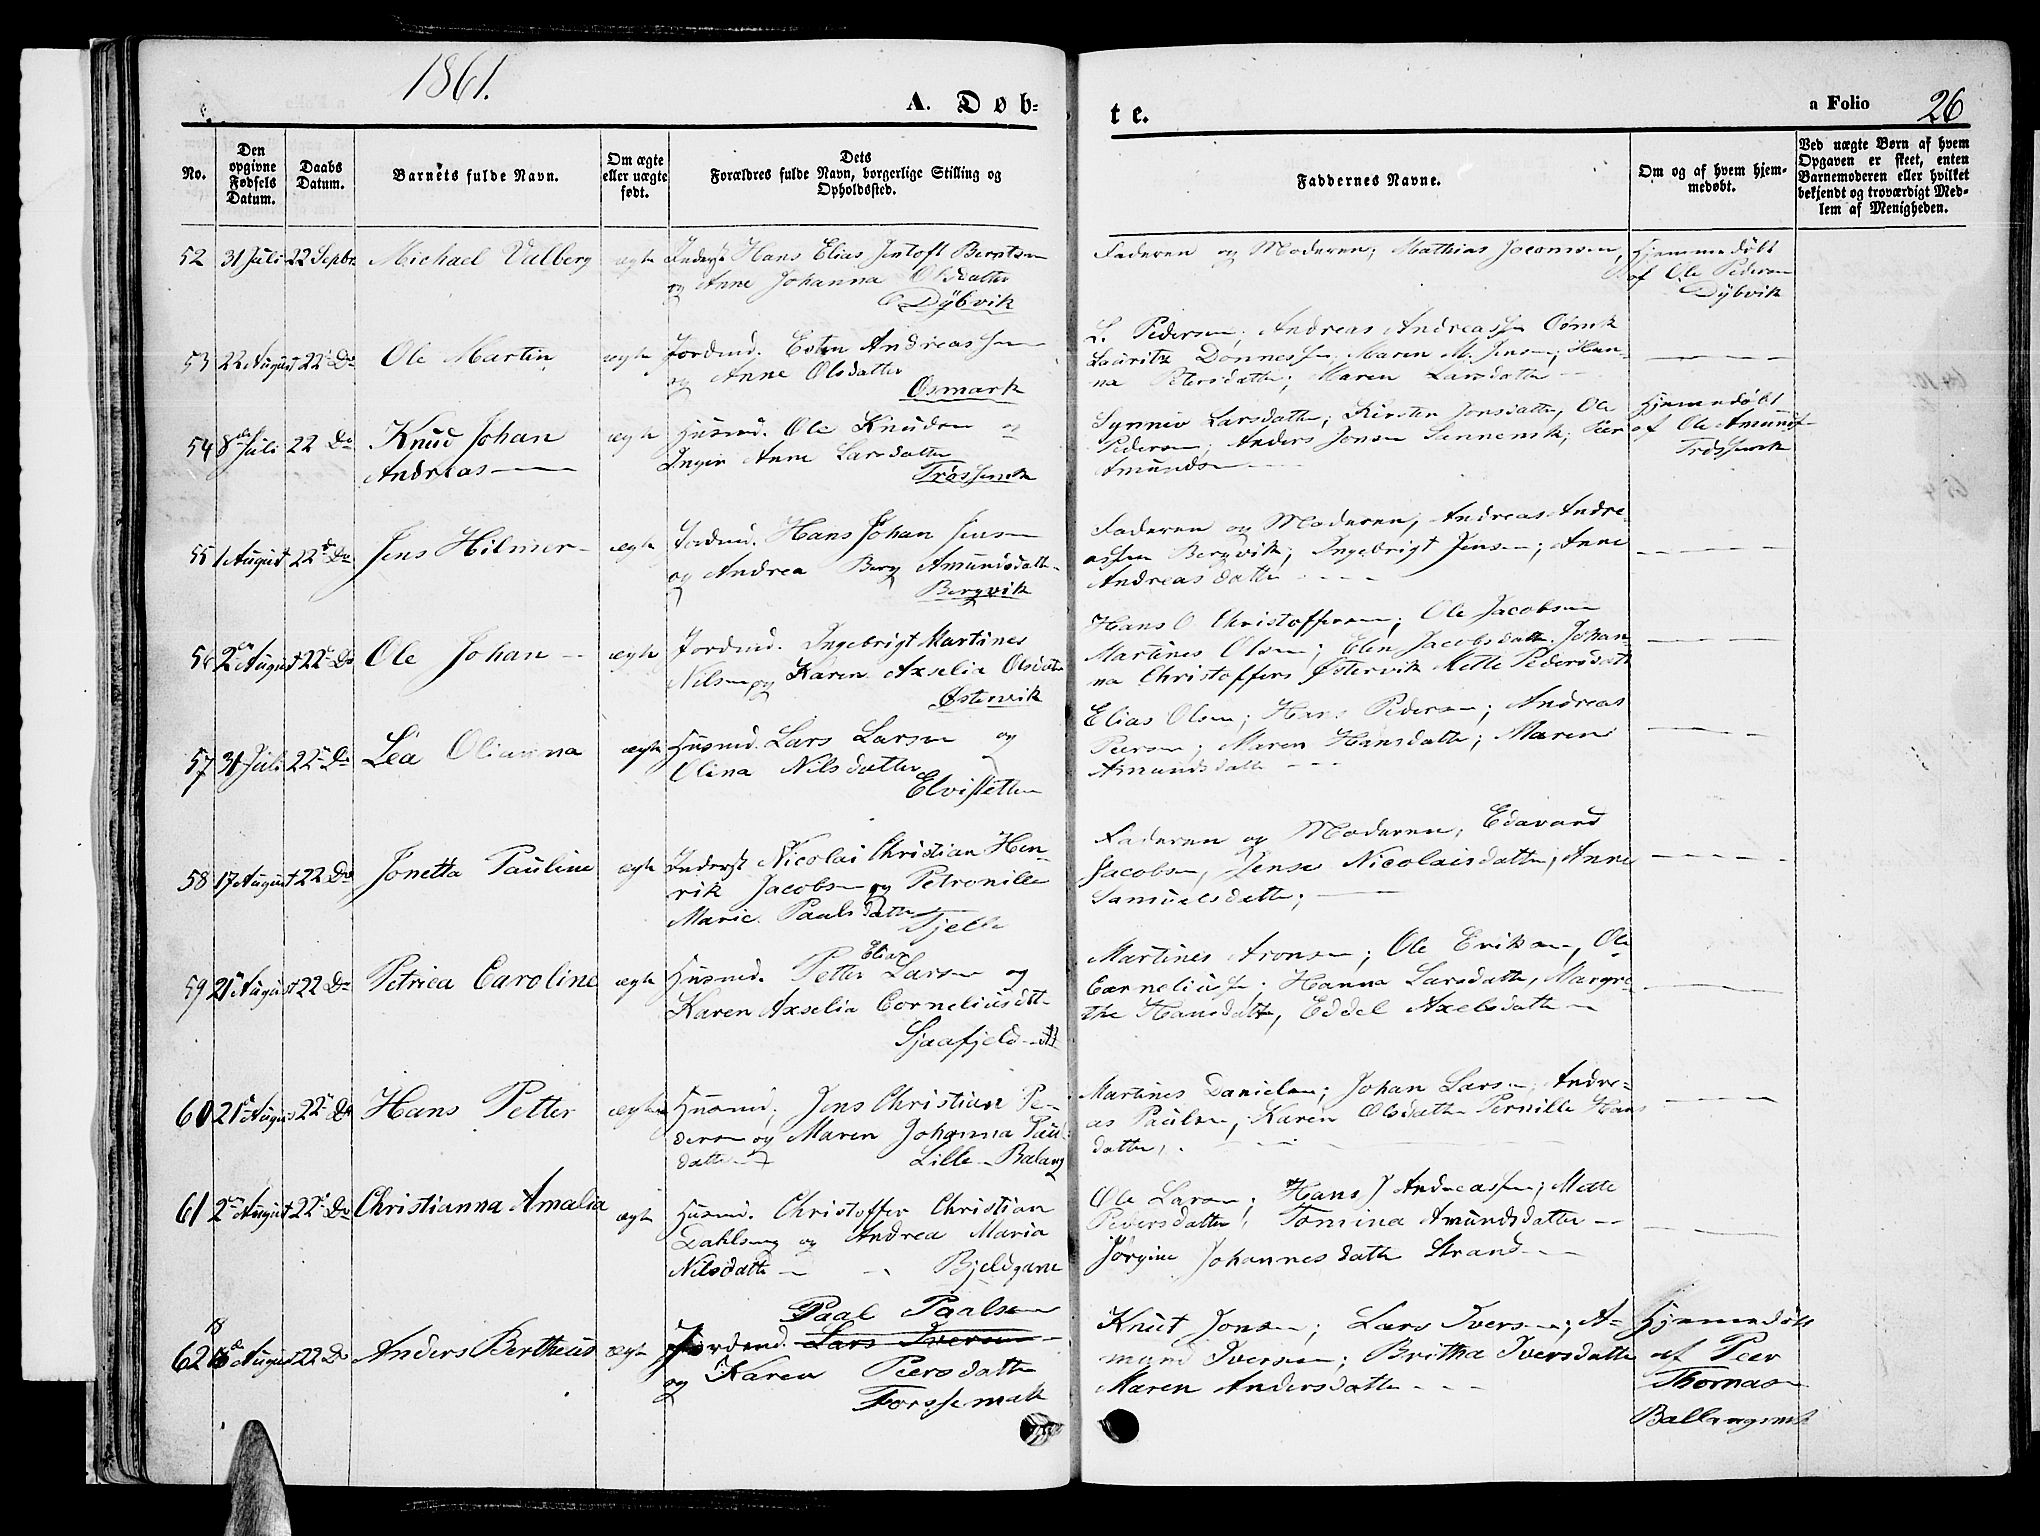 1861.
A. Døb-
te.
a Folio 26
No.
Den opgivne Fødsels Datum.
Daabs Datum.
Barnets fulde Navn.
Om ægte eller uægte født.
Dets Forældres fulde Navn, borgerlige Stilling og Opholdssted.
Faddernes Navne.
Om og af hvem hjemmedøbt.
Ved uægte Børn af hvem Opgaven er skeet, enten Barnemoderen eller hvilket bekjendt og troværdigt Medlem af Menigheden.
52 31 Juli 22 Septbr Michael Valberg ægte Inderst Hans Elias Jentoft Berntsen
og Anne Johanna Olsdatter
Dybvik
Faderen og Moderen; Mathias
Hjemmedøbt
af Ole Pedersen
Dybvik
53 22 August 22 Do Ole Martin ægte Jordmd. Andreassen
og Anne Olsdatter
Osmark
L. Pedersen; Andreas Andreassen
Lauritz Dønnessen; Maren M. Jensen; Han-
na Petersdatter; Maren Larsdatter
54 8de Juli 22 Do Knud Johan
Andreas
ægte Husmd. Ole Knudsen og
Inger Anne Larsdatter
Synnev Larsdatter; Kirsten Jonsdatter, Ole
Pedersen; Anders Jonsen; Peer
Amundsen
Hjemmedøbt
af Ole Amunds
55 1 August 22 Do Jens Hilmer ægte Jordmd. Hans Johan Jensen
og Andrea Berg Amundsdatter
Bergvik
Faderen og Moderen, Andreas Andre-
assen Bergvik; Ingebrigt Jensen; Anne
Andreasdatter
56 2den August 22 Do Ole Johan ægte Jordmd. Ingebrigt Martines
Nilsen og Karen Axselia Olsdatter
Østervik
Hans O. Christoffersen; Ole Jacobsen
Martines Olsen; Elen Jacobsdatter. Johan-
na Christoffers Østervik Mette Pedersdatter
57 31 Juli 22 Do Lea Olianna ægte Husmd. Lars Larsen og
Olina Nilsdatter
Elvisletten
Elias Olsen; Hans Pedersen; Andreas
Peersen; Maren Hansdatter; Maren
Amundsdatter
58 17 August 22 Do Jonetta Pauline ægte Inderst Nicolai Christian Hen-
rik Jacobsen og Petronille
Marie Paalsdatter
Faderen og Moderen; Edavard
Jacobsen, Jense Nicolaisdatter, Anne
Samuelsdatter;
59 21 August 22 Do Petrica Caroline ægte Husmd. Petter Elias Larsen og
Karen Axselia Corneliusdtt
Sjaafjeld
Martines Aronsen; Ole Eriksen, Ole
Corneliussen; Hanna Larsdatter, Margre-
the Hansdatter, Eddel Axelsdatter
60 21 August 22 Do Hans Petter ægte Husmd. Jens Christian Pe-
dersen og Maren Johanna Paul-
datter
Lille-Balang
Martines Danielsen; Johan Larsen, Andre-
as Paulsen, Karen Olsdatter Pernille Hans
datter,
61 2den August 22 Do Christianna Amalia ægte Husmd. Christoffer Christian
Dahlseng og Andrea Maria
Nilsdatter
Bjeldgam
Ole Larsen; Hans J Andreassen; Mette
Pedersdatter, Tomina Amundsdatter
Jørgine Johannesdatter Strand
62 18 August 22 Do Anders Bertheus ægte Paal Paalsen
Jordmd. Lars Iversen
og Karen Peersdatter
Forssemark
Knut Jonsen; Lars Iversen; A-
mund Iversen; Britha Iversdatter
Maren Andersdatter
Hjemmedøbt
af Peer
Thomasen
Ballangsmk